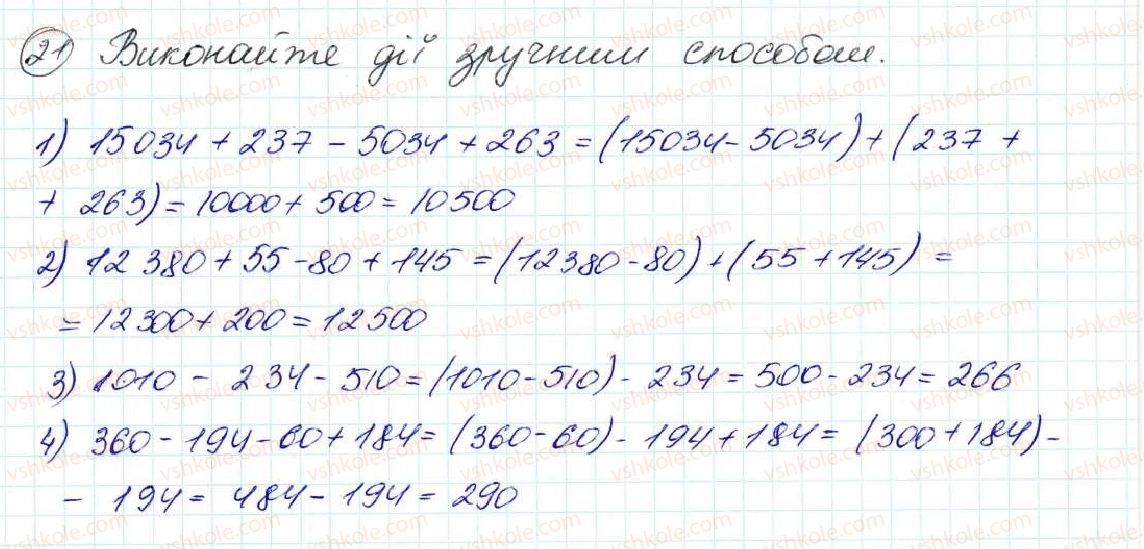 21 Виконайте дії зручним способом.
1) 15034 + 237 - 5034 + 263 = (15034 - 5034) + (237 +
+ 263) = 10000 + 500 = 10500
2) 12 380 + 55 - 80 + 145 = (12380 - 80) + (55 + 145) =
= 12300 + 200 = 12500
3) 1010 - 234 - 510 = (1010 - 510) - 234 = 500 - 234 = 266
4) 360 - 194 - 60 + 184 = (360 - 60) - 194 + 184 = (300 + 184) -
- 194 = 484 - 194 = 290
vshkole.com